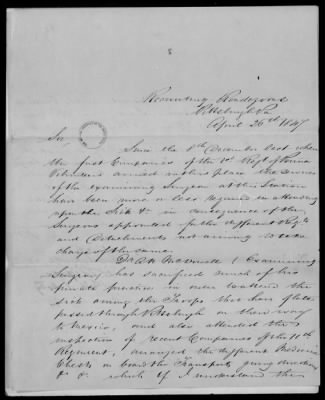 Recruiting Rendezvous
Pittsburgh Pa
April 26th 1847
Sir,
Since the 8th December last when
the first Companies of the 1st Regt of Penna
Volunteers arrived at this place the services
of the examining Surgeon at this Station
have been more or less required in attending
upon the Sick &c in consequence of the
Surgeons appointed for the different Regts
and Detachments not arriving to take
charge of the same.
Dr (Examining
Surgeon) has sacrificed much of his
private practice in
sick among the Troops that have
passed through Pittsburgh on their way
to Mexico, and also attended the
inspection of recent Companies of the 11th
Regiment, arranged the different Medicine
Chests on board the Transports giving directions
&c &c which if I understand the